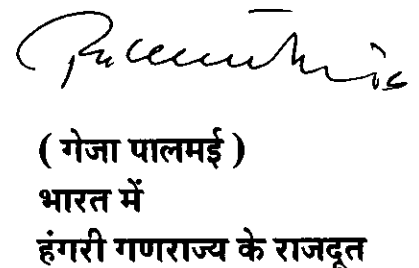 ( गेजा पालमई )
भारत में
हंगरी गणराज्य के राजदूत